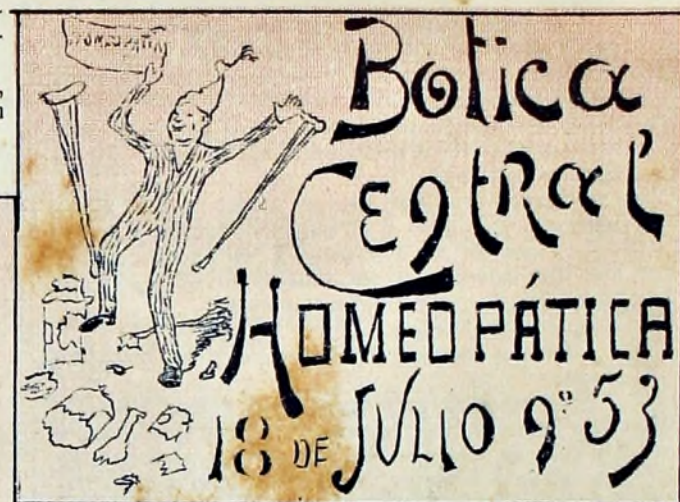 HOMEOPATIA
Botica
Central
HOMEOPÁTICA
18 DE JULIO Nº 53